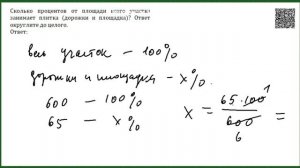 Сколько процентов от площади всего участка
занимает плитка (дорожки и площадка)? Ответ
округлите до целого.
Ответ:
весь участок — 100%
дорожки и площадка — x%.
600 — 100%
65 — x%
x = 65·100¹ / 600 =
6